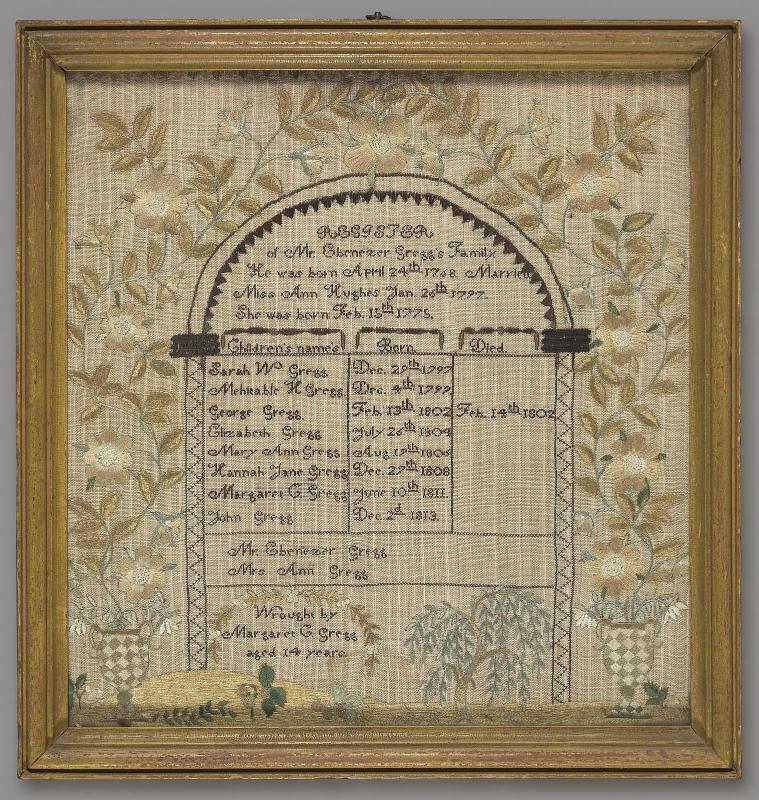 REGISTER
of Mr. Ebenezer Gregg's Family
He was born April 24th 1768 Married
Miss Ann Hughes Jan. 26th 1797.
She was born Feb. 15th 1775.
Children's names Born. Died.
Sarah Wm Gregg Dec. 29th 1797
Mehitable H Gregg Dec. 4th 1799
George Gregg Feb. 13th 1802 Feb. 14th 1802
Elizabeth Gregg July 26th 1804
Mary Ann Gregg Aug 19th 1806
Hannah Jane Gregg Dec. 27th 1808
Margaret G. Gregg June 10th 1811.
John Gregg Dec. 2d 1813.
Mr. Ebenezer Gregg
Mrs. Ann Gregg
Wrought by
Margaret G. Gregg
aged 14 years